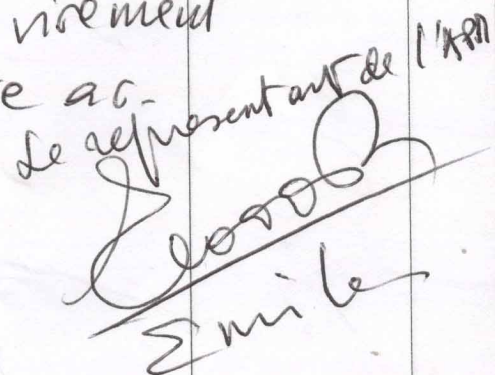 virement
e ac
Le représentant de l'APM
Emile